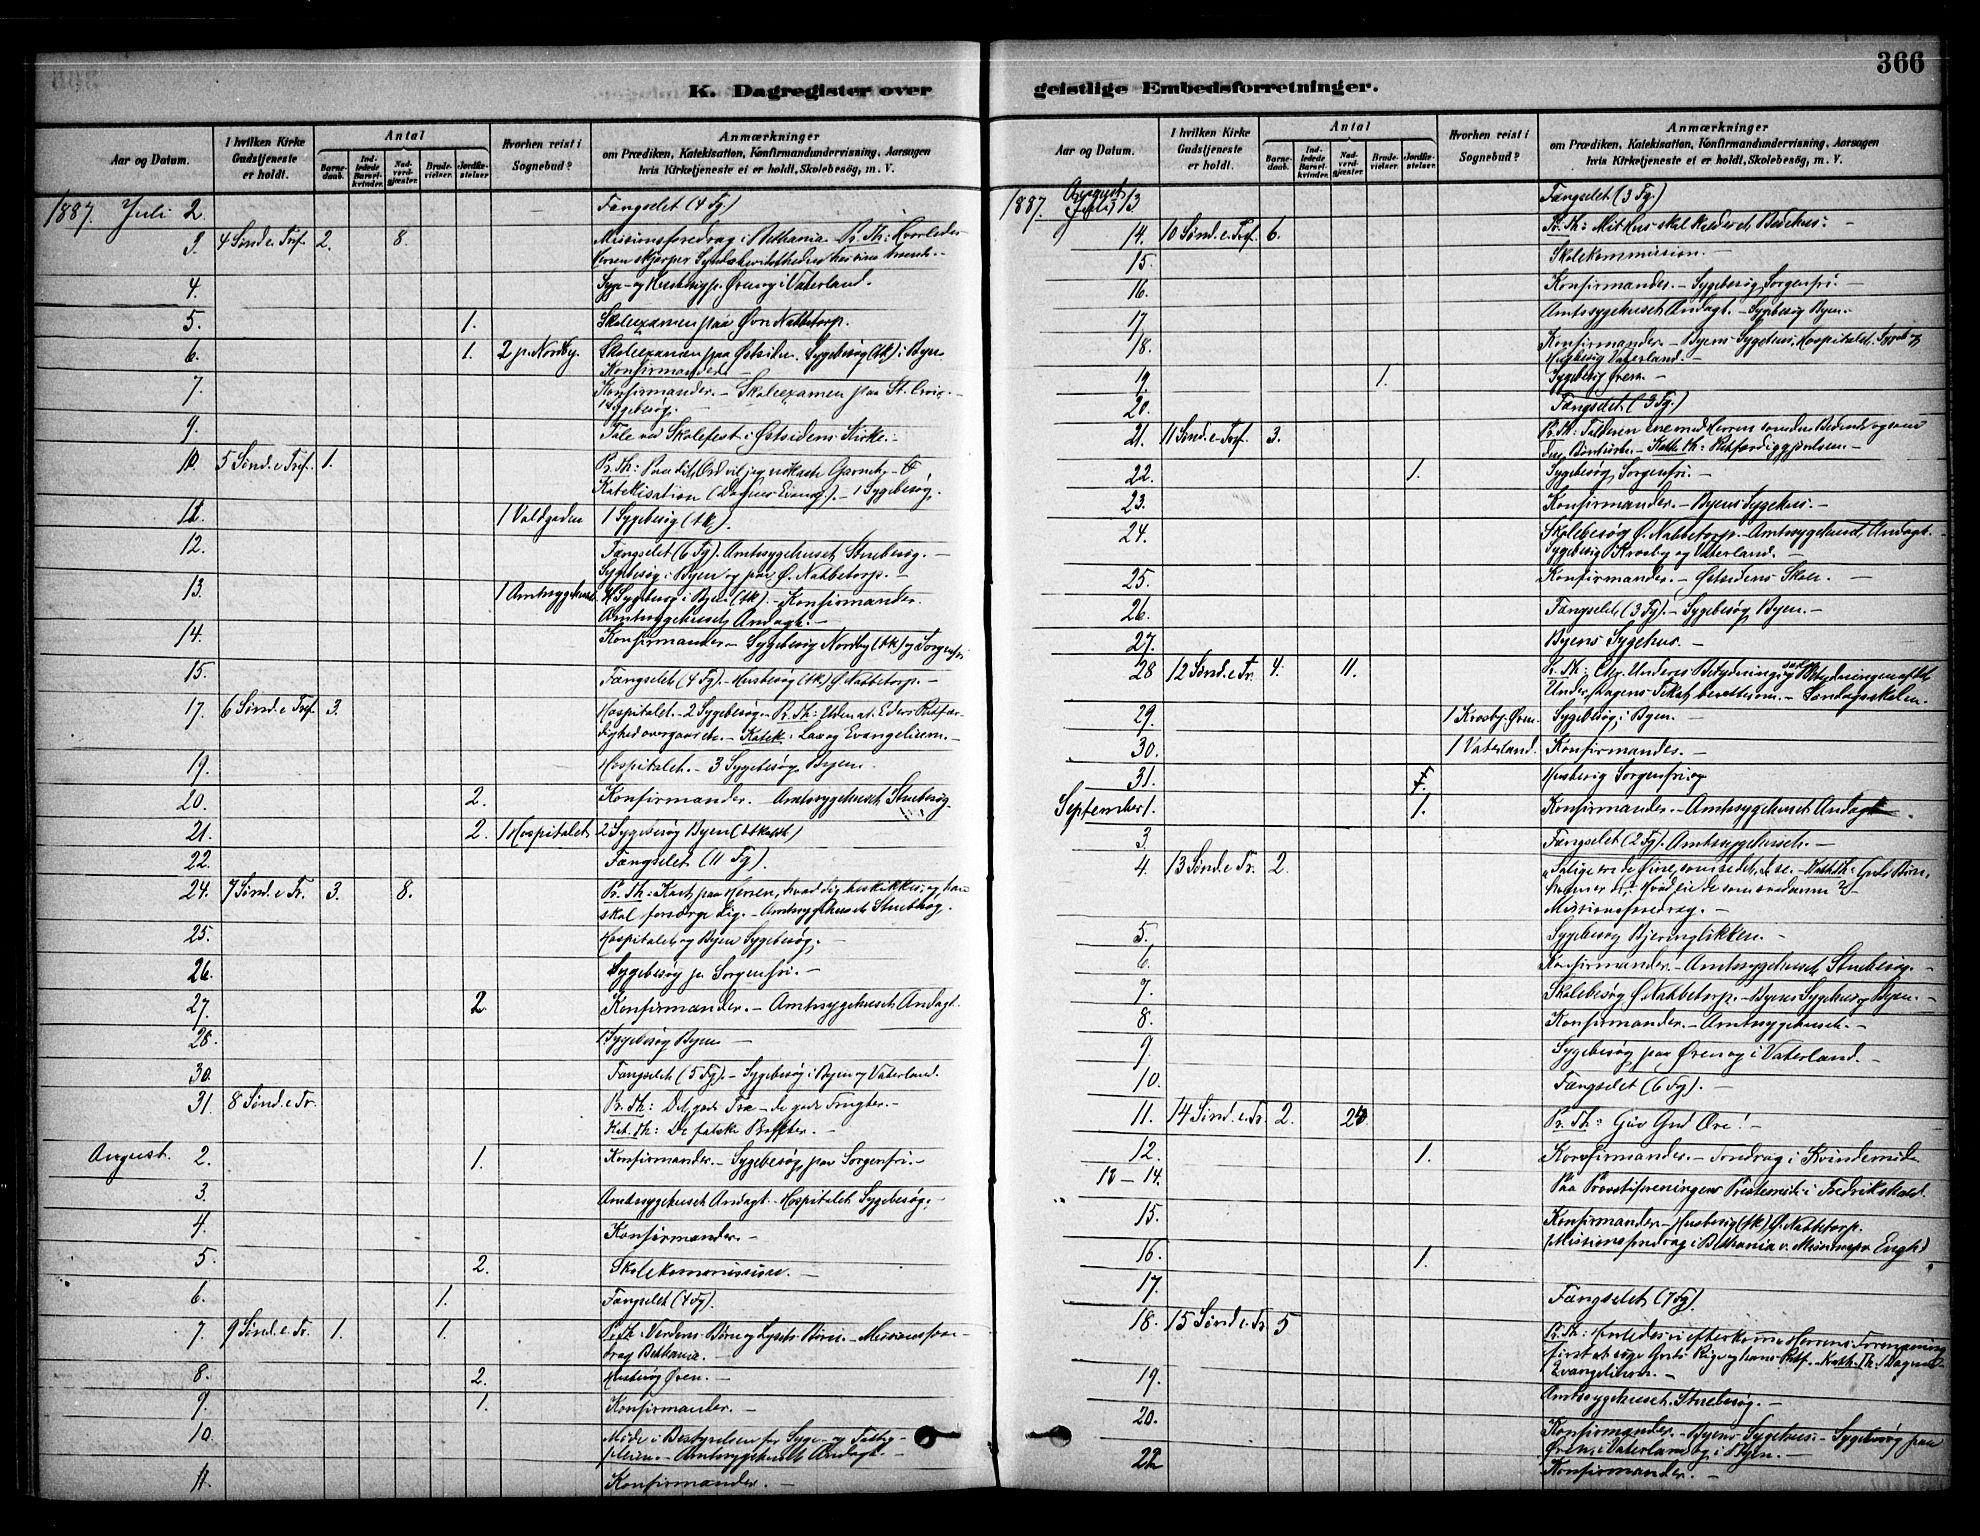 366
K. Dagregister over
geistlige Embedsforretninger.
Aar og Datum.
I hvilken Kirke Gudstjeneste er holdt.
Antal
Barnedaab.
Indledede Barselkvinder.
Nadverdgjæster.
Brudevielser.
Jordfæstelser
Hvorhen reist i Sognebud?
Anmærkninger
om Prædiken, Katekisation, Konfirmandundervisning, Aarsagen
hvis Kirketjeneste ei er holdt, Skolebesøg, m. V.
1887. Juli 2. Fængselet (4 Fg.)
3. 4 Sønd. e. Tref. 2. 8. Missionsforedrag i Bethania. Pr. Th: Hvorledes
Herren skjærper
4. Syge- og Husbesøg p. Øren og i Vaterland.
5. 1. Skoleexamen paa Øvre Nabbetorp.
6. 1. 2 p. Nordby. Skoleexamen paa Østsiden. Sygebesøg (tk) i Byen
Konfirmander
7. Konfirmander. – Skoleexamen paa St. Croix. –
1 Sygebesøg.
9. Tale ved Skolefest i Østsidens Kirke. –
10. 5 Sønd. e. Tref. 1. Pr. Th: Paa dit Ord vil jeg udkaste Garnet. –
Katekisation (Dagens Evang.). – 1 Sygebesøg.
11. 1 Voldgaden 1 Sygebesøg (tk).
12. Fængselet (6 Fg). Amtssygehuset Stuebesøg. –
Sygebesøg i Byen og paa Ø. Nabbetorp. –
13. 1 Amtssygehuset Sygebesøg i Byen (tk). – Konfirmander.
Amtssygehuset Andagt. –
14. Konfirmander – Sygebesøg Nordby (tk) og Sorgenfri
15. Fængselet (4 Fg). – Husbesøg (tk) Ø. Nabbetorp. –
17. 6 Sønd. e. Tref. 3. Hospitalet. – 2 Sygebesøg. – Pr. Th: Uden at Eders Retfær-
dighed overgaar etc. – Katek: Lov og Evangelium. –
19. Hospitalet. – 3 Sygebesøg Byen.
20. 2. Konfirmander. Amtssygehuset Stuebesøg.
21. 2. 1 Hospitalet 2 Sygebesøg Byen
22. Fængselet (11 Fg).
24. 7 Sønd. e. Tr. 3. 8. Pr. Th: Kast paa Herren, hvad dig beskikkes; og han
skal forsørge dig. – Amtssygehuset Stuebesøg.
25. Hospitalet og Byen Sygebesøg. –
26. Sygebesøg p. Sorgenfri. –
27. 2 Konfirmander. – Amtssygehuset Andagt.
28. 1 Sygebesøg Byen –
30. Fængselet (5 Fg). – Sygebesøg i Byen og Vaterland.
31. 8 Sønd. e. Tr. Pr. Th: Det gode Træ – de gode Frugter. –
Kat. Th: De falske Profeter. –
August. 2. 1. Konfirmander. – Sygebesøg paa Sorgenfri. –
3. Amtssygehuset Andagt. Hospitalet Sygebesøg. –
4. Konfirmander. –
5. 2. Skolekommission. –
6. 1. Fængselet (4 Fg).
7. 9 Sønd. e. Tr. 1. 1. Pr. Th: Verdens Børn og Lysets Børn. – Missionsfore-
drag Bethania. –
8. 2. Husbesøg Øren. –
9. 1. Konfirmander. –
10. Møde i Bestyrelsen for Syge- og Fattig-
pleien. – Amtssygehuset Andagt –
11. Konfirmander. –
Aar og Datum.
I hvilken Kirke Gudstjeneste er holdt.
Antal
Barnedaab.
Indledede Barselkvinder.
Nadverdgjæster.
Brudevielser.
Jordfæstelser.
Hvorhen reist i Sognebud?
Anmærkninger
om Prædiken, Katekisation, Konfirmandundervisning, Aarsagen
hvis Kirketjeneste ei er holdt, Skolebesøg, m. V.
1887. August 13 Fængselet (3 Fg.)
14. 10 Sønd. e. Tref. 6. Pr. Th: Mit Hus skal kaldes et Bedehus. –
15. Skolekommission. –
16. Konfirmander. – Sygebesøg Sorgenfri. –
17 Amtssygehuset Andagt. – Sygebesøg Byen. –
18. Konfirmander. – Byens Sygehus, Hospitalet, Syge- og
Husbesøg Vaterland. –
19. 1. Sygebesøg Øren. –
20. Fængselet (3 Fg.)
21. 11 Sønd. e. Tref. 3. Pr. Th: Tolderen
Bønhørte. – Kate. Th: Retfærdiggjørelsen. –
22. 1. Sygebesøg Sorgenfri. –
23. Konfirmander. – Byens Sygehus. –
24. Skolebesøg Ø. Nabbetorp. – Amtssygehuset Andagt. –
Sygebesøg i Krosby og Vaterland. –
25. Konfirmander. – Østsidens Skole. –
26. Fængselet (3 Fg). – Sygebesøg Byen. –
27. Byens Sygehus. –
28 12 Sønd. e. Tr. 4. 11. Pr. Th:
Under, Dagens Tekst – Søndagsskolen. –
29. 1 Krosby. Øren. Sygebesøg i Byen. –
30. 1 Vaterland. Konfirmander. –
31. Husbesøg Sorgenfri
September 1. 1. Konfirmander – Amtssygehuset Andagt.
3. Fængselet (2 Fg). Amtssygehuset. –
4. 13 Sønd. e. Tr. 2. Salige ere de Øine, som se det, I se. – Kat. Th: Guds Børn,
Missionsforedrag. –
5. Sygebesøg Bjeringlikken. –
6. Konfirmander. – Amtssygehuset Stuebesøg. –
7. Skolebesøg Ø. Nabbetorp. – Byens Sygehus og Byen. –
8. Konfirmander. – Amtssygehuset. –
9. Sygebesøg paa Øren og i Vaterland. –
10. Fængselet (6 Fg). –
11. 14 Sønd. e. Tr. 2. Pr. Th: Giv Gud Ære! –
12. 1. Konfirmander. – Foredrag i Kvindemøde
13 – 14. Paa Provstiforeningens Prestemøde i Fredrikshald.
15. Konfirmander. – Husbesøg (tk) Ø. Nabbetorp.
Missionsforedrag i Bethania v. Missionspr. Engh.
16. 1.
17. Fængselet (7 Fg).
18. 15 Sønd. e. Tr. 5 Pr. Th: Hvorledes vi efterkomme Herrens Formaning
først at søge Guds Rige og hans Retf. – Kat. Th: Dagens
Evangelium. –
19. Amtssygehuset. Stuebesøg. –
20. Konfirmander. – Byens Sygehus. – Sygebesøg paa
Øren, i Vaterland og i Byen. –
22. Konfirmander. –